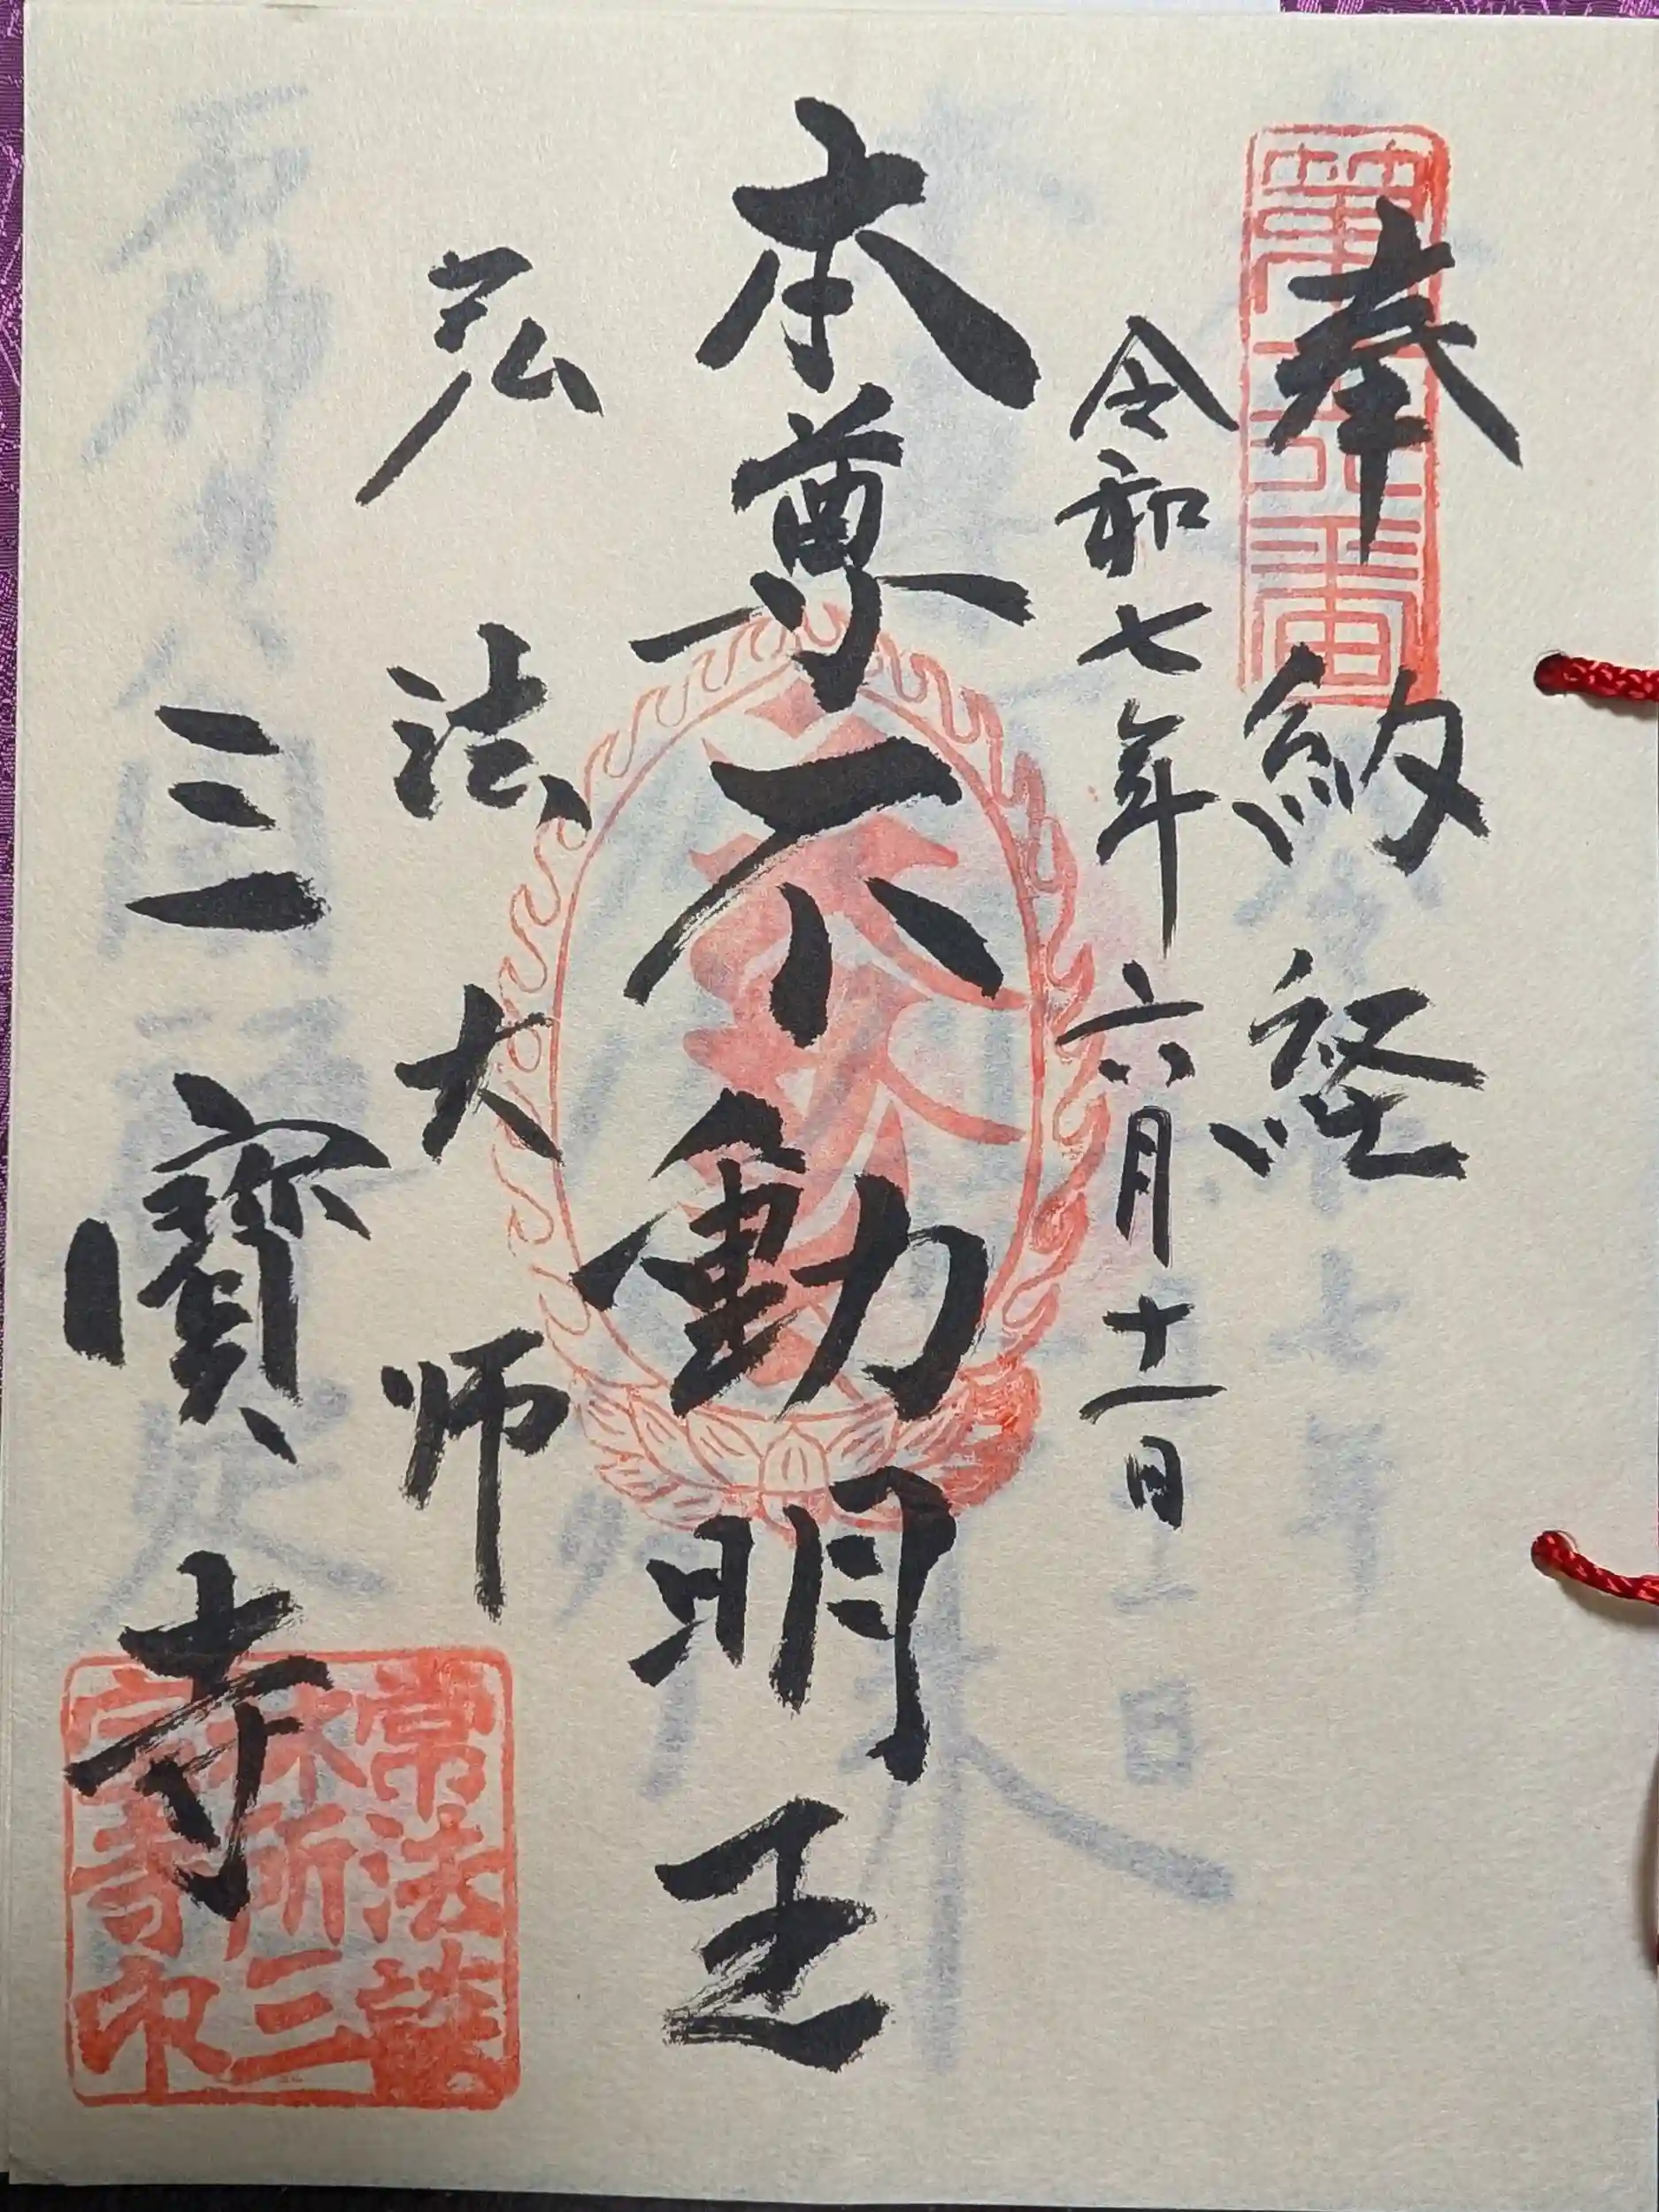 奉納経
令和七年六月十一日
本尊不動明王
弘法大師
三寳寺
常法談
林所三
宝寺印